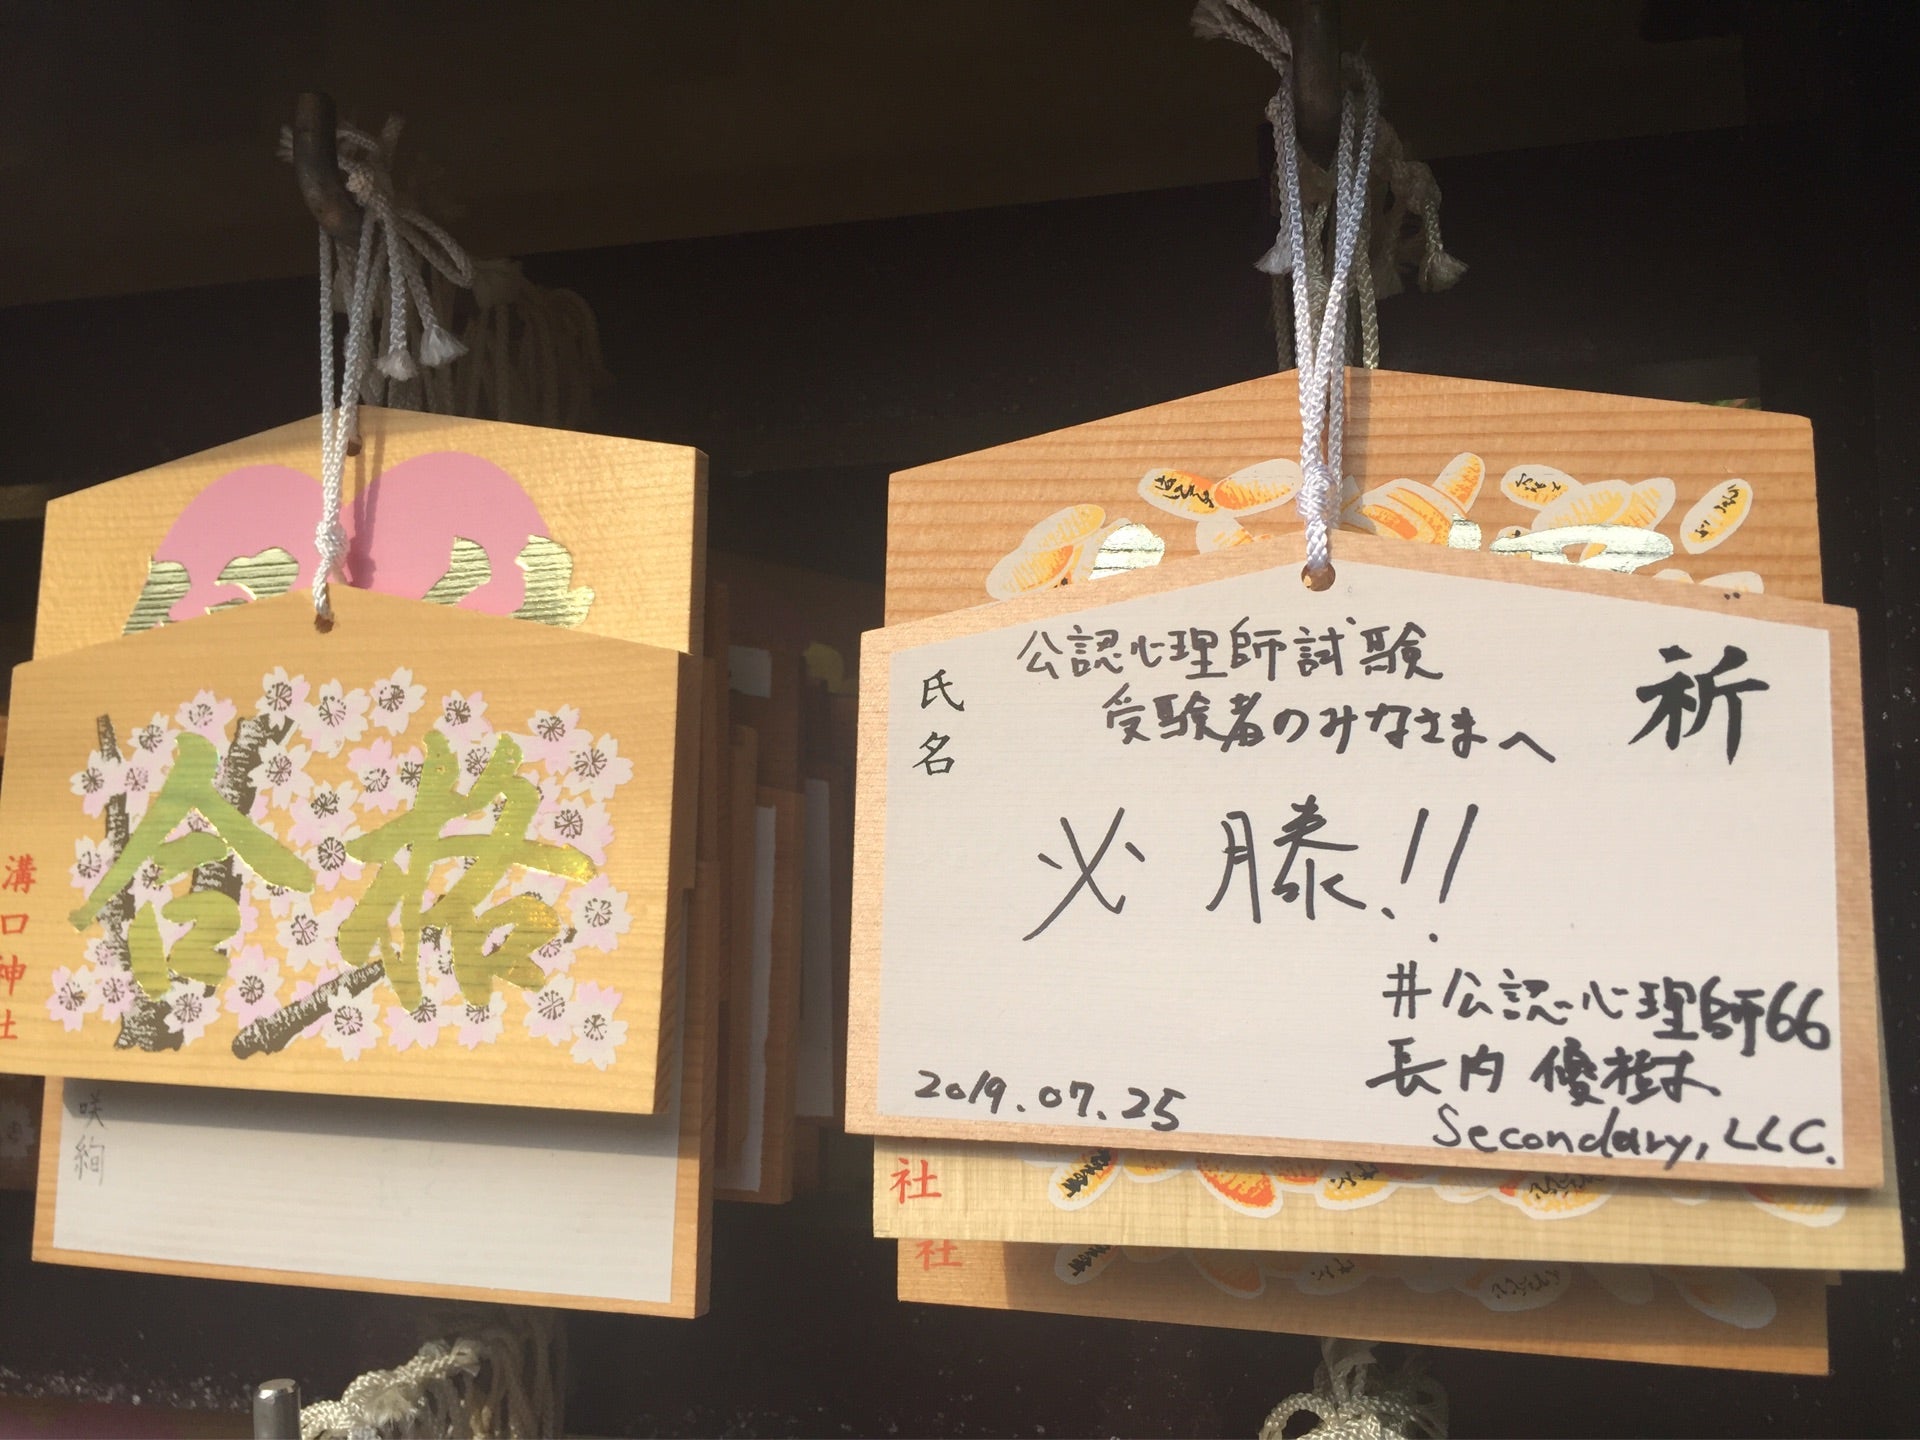 合格
溝口神社
咲絢
祈
氏名
公認心理師試験
受験者のみなさまへ
必勝!!
#公認心理師66
長内優樹
Secondary, LLC.
2019.07.25
社
社